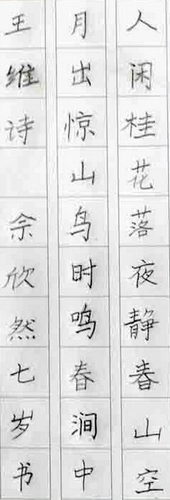 人闲桂花落夜静春山空
月出惊山鸟时鸣春涧中
王维诗 佘欣然七岁书